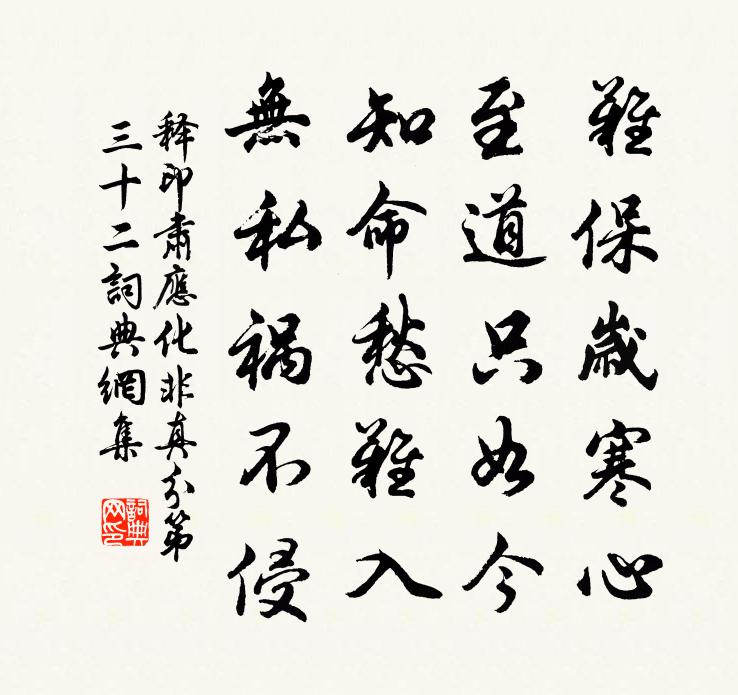 難保歲寒心
至道只如今
知命愁難入
無私禍不侵
释印肅應化非真分第
三十二詞典網集
詞典網印